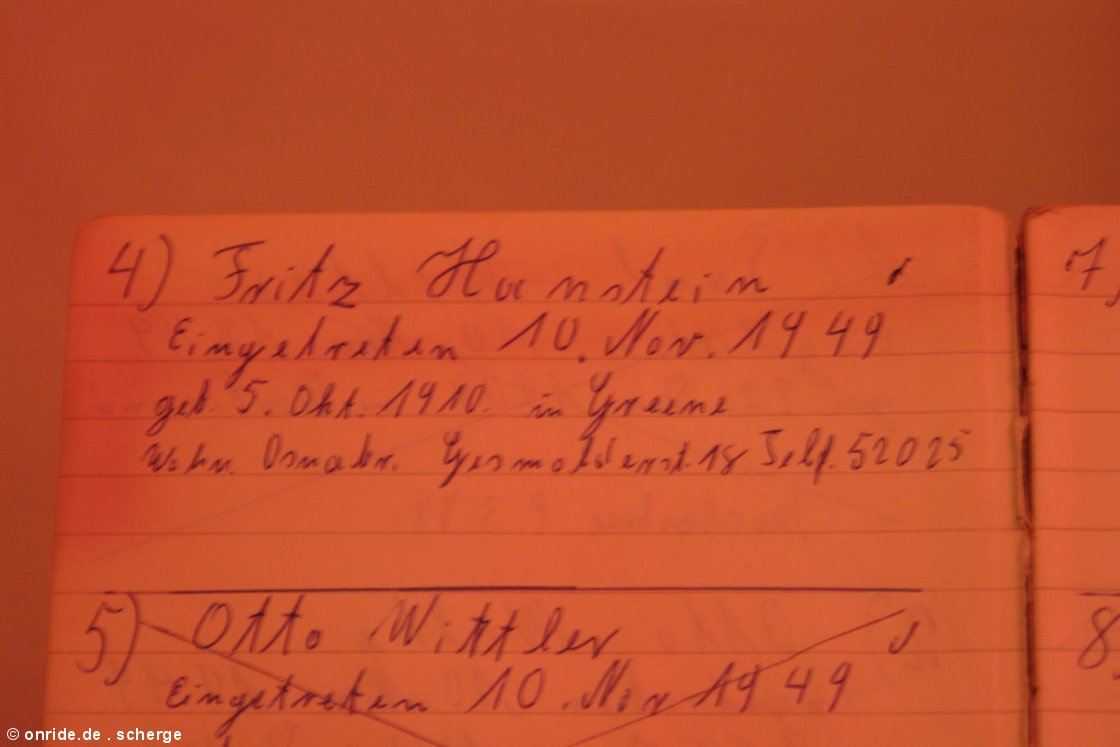 4) Fritz Hanstein
Eingetreten 10. Nov. 1949
geb. 5. Okt. 1910. in Greene
Wohn. Osnabr. Gesmolderst. 18 Telf. 52025
5) Otto Wittler
Eingetreten 10. Nov 1949
7)
8.
© onride.de . scherge